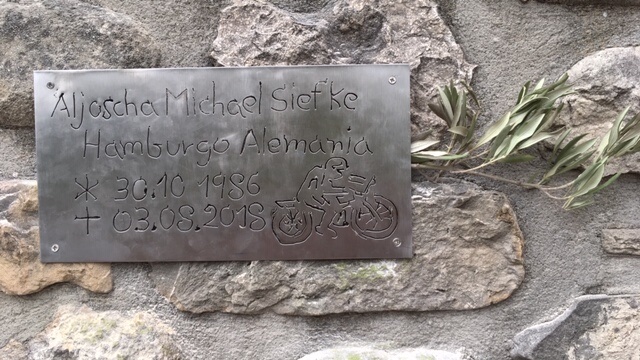 Aljoscha Michael Siefke
Hamburgo Alemania
* 30.10 1986
+ 03.08.2018